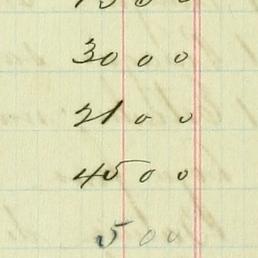 30 0 0
21 0 0
45 0 0
5 0 0